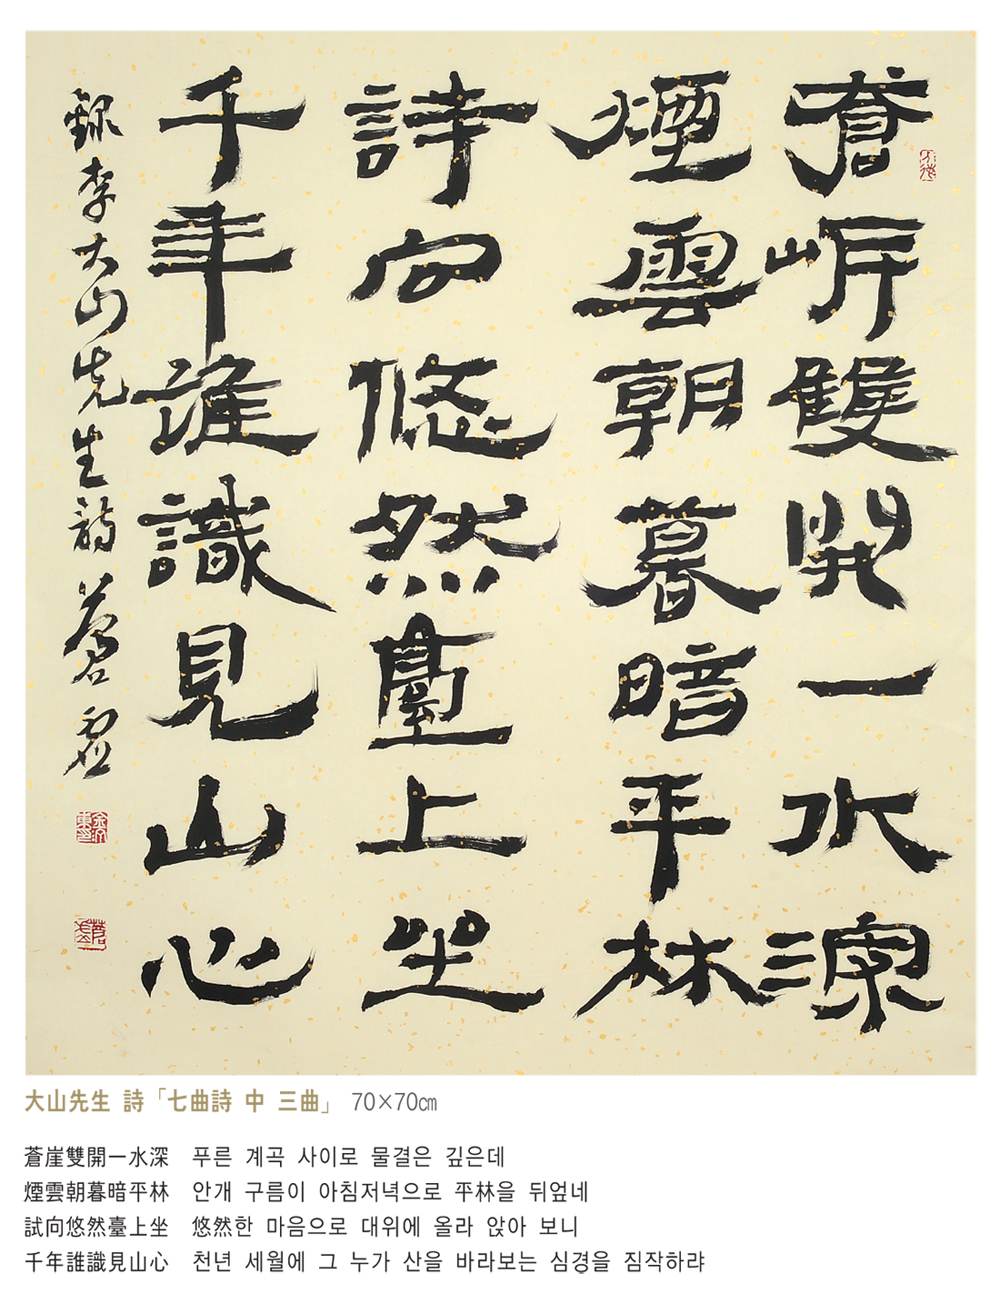 蒼岸雙開一水深
煙雲朝暮暗平林
詩向悠然臺上坐
千年誰識見山心
錄李大山先生詩 蒼虛
大山先生 詩「七曲詩 中 三曲」 70×70㎝
蒼崖雙開一水深 푸른 계곡 사이로 물결은 깊은데
煙雲朝暮暗平林 안개 구름이 아침저녁으로 平林을 뒤엎네
試向悠然臺上坐 悠然한 마음으로 대위에 올라 앉아 보니
千年誰識見山心 천년 세월에 그 누가 산을 바라보는 심경을 짐작하랴